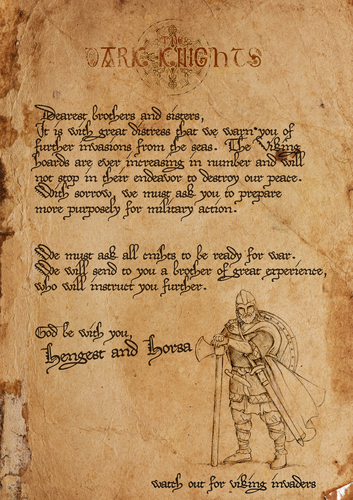 The
DARK KNIGHTS
Dearest brothers and sisters,
It is with great distress that we warn you of
further invasions from the seas. The Viking
hoards are ever increasing in number and will
not stop in their endeavor to destroy our peace.
With sorrow, we must ask you to prepare
more purposely for military action.
We must ask all cnihts to be ready for war.
We will send to you a brother of great experience,
who will instruct you further.
God be with you,
Hengest and Horsa
watch out for viking invaders